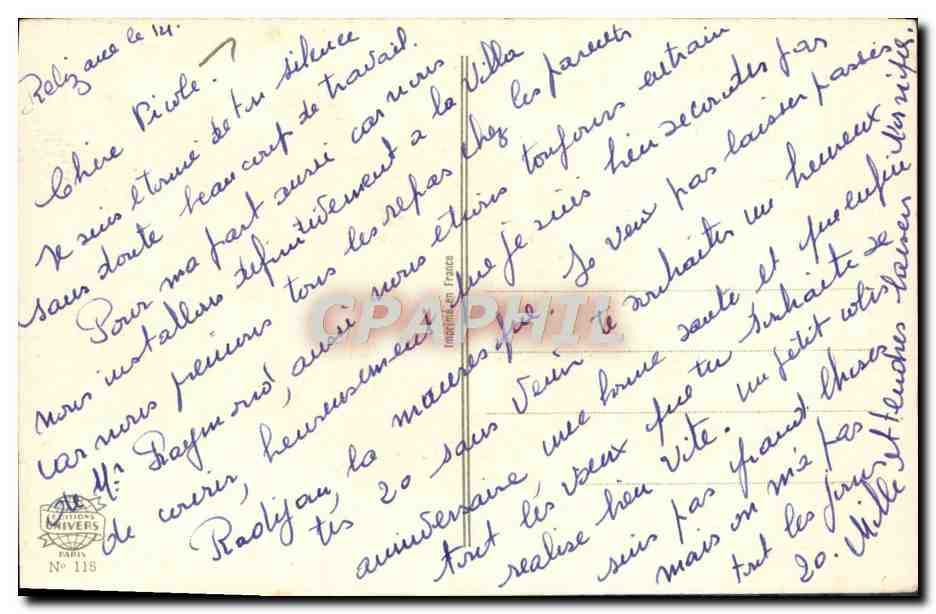 Relizane le 14.
Chère Picole.
Je suis étonné de ton silence
sans doute beaucoup de travail.
Pour ma part aussi car nous
nous installons définitivement à la Villa
car nous prenions tous les repas chez les parents
de Mr Raymond, aussi nous étions toujours entrain
de courir, heureusement que je suis bien secondée par
Radijou, la mauresque. Je veux pas laisser passés
tés 20 sans venir te souhaiter un heureux
anniversaire, une bonne santé et que enfin
tout les voeux que tu souhaite se
réalise bien vite. un petit colis
suis pas grand choses
mais on n'a pas
tout les jours
20. Mille et tendres baisers
EDITIONS
UNIVERS
PARIS
N° 118
Imprimé en France
CPAPHIL